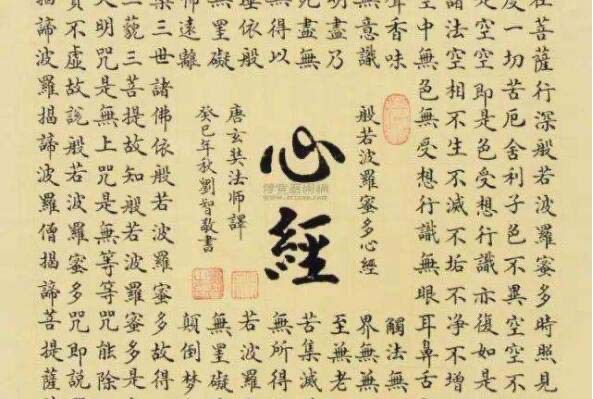 在菩薩行深般若波羅蜜多時照見
度一切苦厄舍利子色不異空空不
是空空即是色受想行識亦復如是
諸法空相不生不滅不垢不净不增
空中無色無受想行識無眼耳鼻舌
聲香味
觸法無
無意識
界無無
明盡乃
至無老
死盡無
苦集滅
無得以
無所得
埵依般
若波羅
無罣礙
無罣礙
怖遠離
顛倒夢
般若波羅蜜多心經
心經
唐玄奘法師譯
癸巳年秋劉智敬書
槃三世諸佛依般若波羅蜜多故得
三藐三菩提故知般若波羅蜜多是
大明咒是無上咒是無等等咒能除
實不虛故說般若波羅蜜多咒即說
揭諦波羅揭諦波羅僧揭諦菩提薩